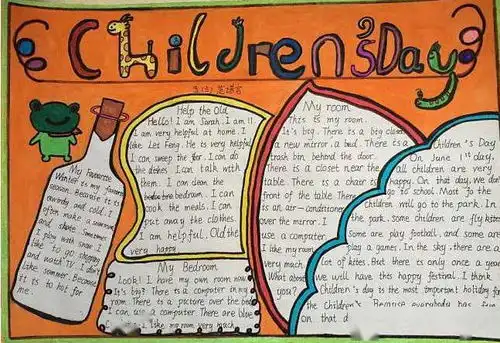 Children's Day
Help the Old
Hello! I am Sarah. I am 11
I am very helpful at home. I
like Lei Feng. He is very helpful
I can sweep the floor. I can do
the dishes. I can talk with
them. I can clean the
bedroom. I can
cook the meals. I can
put away the clothes.
I am helpful. Old the
very happy
My Favourite
Winter is my favorite
season. Because it is
windy and cold. I
often make a snowman
and skate. Sometimes
I play with snow. I
like to go shopping
and watch TV. I don't
like summer. Because
it is to hot for
me.
My Bedroom
Look! I have my own room now
It's big? There is a computer in my
room. There is a picture over the bed
I can use a computer. There are blue
like my room very much
My room
This is my room.
It's big. There is a big closet
a new mirror, a bed. There is a
trash bin behind the door.
There is a closet near the
table. There is a chair is
front of the table. There
is an air-conditioner
over the mirror. I
use a computer.
I like my room
very much.
What about
you?
Children's Day
On June 1st day,
all children are very
happy. On that day, we don't
go to school. Most
Children will go to the park. In
the park, some children are fly kites
Some are play football, and some are
play a games. In the sky, there are a
lot of kites. But there is only once a year
we will have this happy festival. I think
Children's day is the most important holiday for
the Children's. Because everybody has fun
on that d